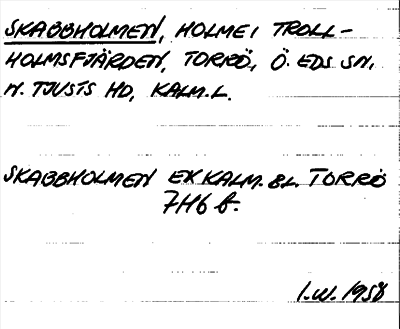 SKABBHOLMEN, HOLME I TROLL-
HOLMSFJÄRDEN, TORRÖ, Ö. EDS SN,
N. TJUSTS HD, KALM. L.
SKABBHOLMEN EK KALM. BL. TORRÖ
7H6 b.
I.W. 1958